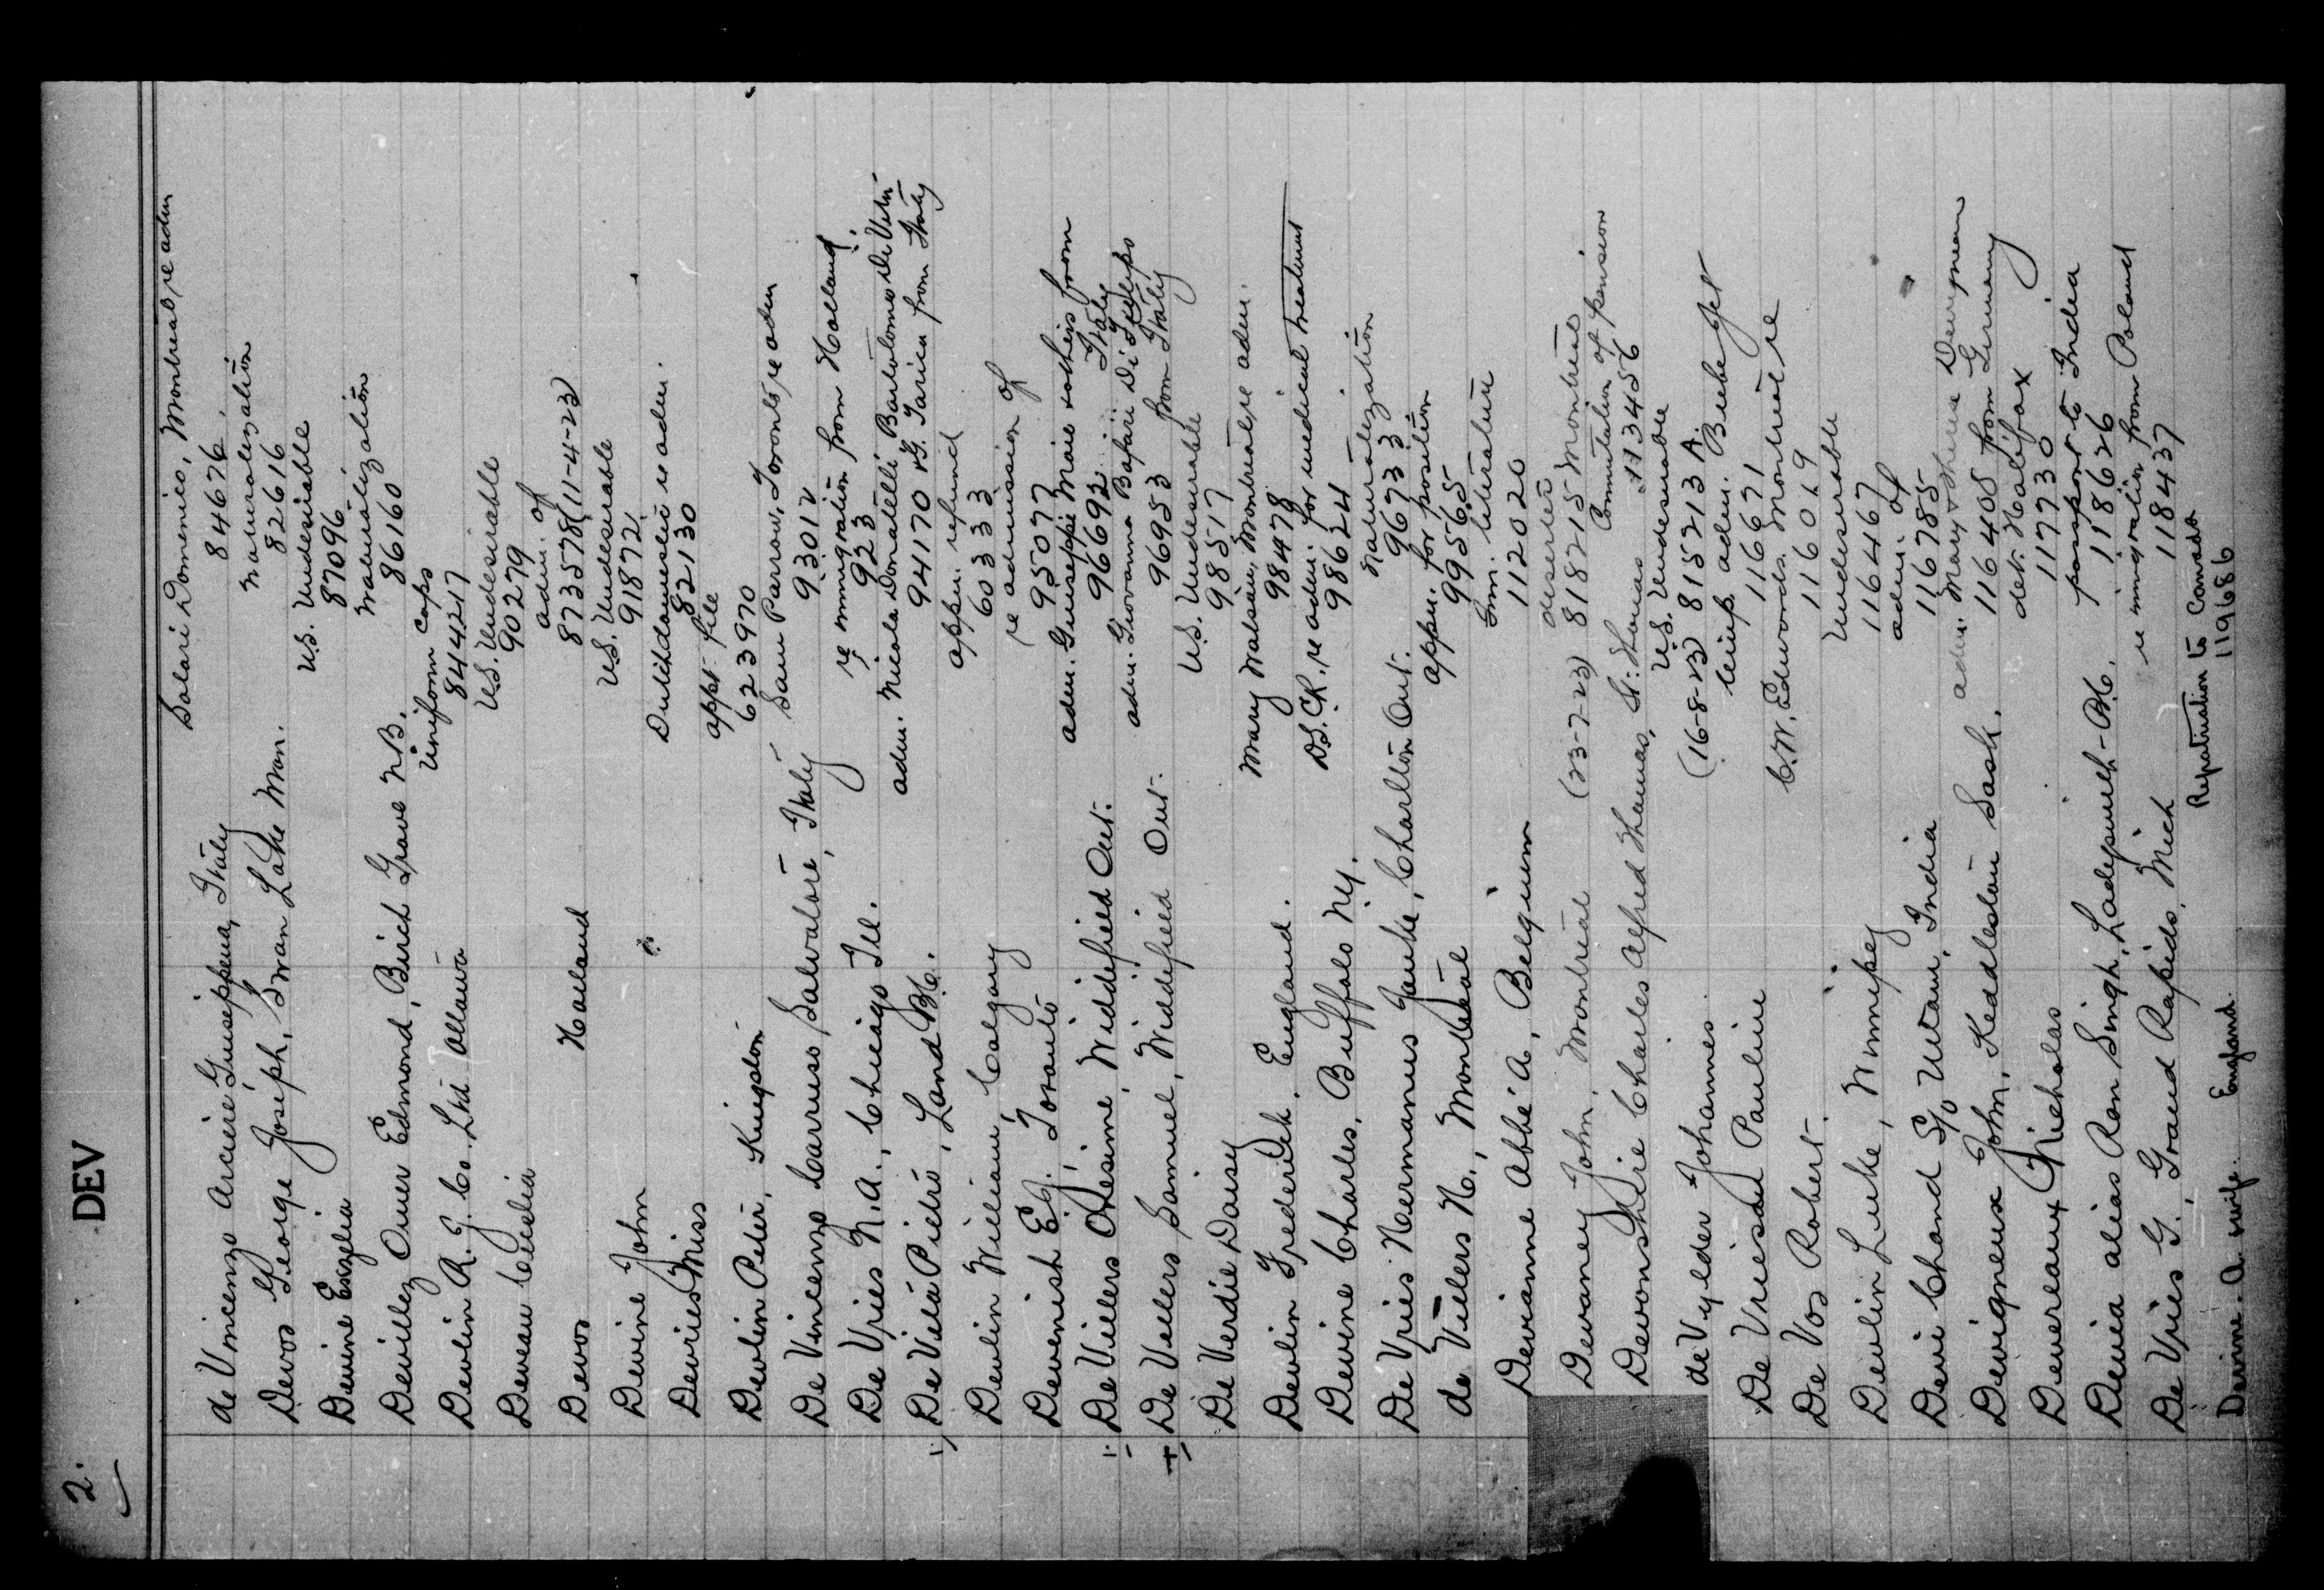 2.
DEV
Solari Domenico, Montreal, re adm
de Vincenzo Arciere Guiseppena, Italy 84676
naturalization
Devos George Joseph, Swan Lake Man. 82616
U.S. Undesirable
Devine Enzelia 87096
Naturalization
Devillez Omer Edmond, Birch Grove N.B. 86160
Uniform caps
Devlin R. J. Co. Ltd Ottawa 844217
U.S. Undesirable
Deveau Cecelia 90279
adm. of
Devos Holland 873578 (11-4-23)
U.S. Undesirable
Devine John 91872
re adm.
Devries Miss 82130
appt file
Devlin Peter, Kingston 623970
Sam Parrow, Toronto, re adm
De Vincenzo Carruso Salvatore, Italy 93012
re immigration from Holland
De Vries N.A., Chicago Ill. 923
adm. Nicola Donatelli Bartolomeo De Vito
De Vito Pietro, Land B.C. 94170 from Italy
appn. refund
Devlin William, Calgary 60333
re admission of
Devenish E.J. Toronto 95077
adm. Guiseppe Maio & others from Italy
De Villers Onesime, Widdifield Ont. 96692
adm. Giovanna from Italy
De Vellers Samuel, Widdifield Ont. 96953
U.S. Undesirable
De Verdie Daisy 98517
Mary Watson, Montreal, re adm.
Devlin Frederick, England. 98478
D.S.C.R. re adm. for medical treatment
Devine Charles, Buffalo N.Y. 98624
Naturalization
De Vries Hermanus Jauke, Charlton Ont. 96733
appn. for position
de Villers H., Montreal 99565
Imm. literature
Devianne Abbé A, Belgium 112020
deserted
Devaney John, Montreal (23-7-23) 818215 Montreal
Commutation of pension
Devonshire Charles Alfred Thomas, St. Thomas 1134456
U.S. Undesirable
de Vylder Johannes (16-8-23) 815213 A.
temp. adm. Beebe Jct
De Vriesau Pauline 116671
C.W. Edwards. Montreal re
De Vos Robert 116019
Undesirable
Devlin Luke, Winnipeg 116467
adm. of
Devi Chand S/o Utam, India 116785
adm. Mary &
Devigneux John, Keddleston Sask. 116408 from Germany
det. Halifax
Devereaux Nicholas 117730
passport to India
Devia alias Ran Singh, Ladysmith B.C. 118626
re immigration from Poland
De Vries G. Grand Rapids, Mich 118437
Repatriation to Canada
Devine A. wife. England. 119686